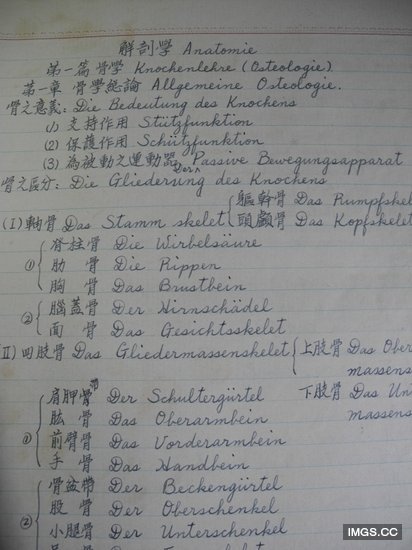 解剖學 Anatomie
第一篇 骨學 Knochenlehre (Osteologie)
第一章 骨學總論 Allgemeine Osteologie.
骨之意義: Die Bedeutung des Knochens
(1) 支持作用 Stützfunktion
(2) 保護作用 Schützfunktion
(3) 為被動之運動器 Der Passive Bewegungsapparat
骨之區分: Die Gliederung des Knochens
(I) 軸骨 Das Stammskelet { 軀幹骨 Das Rumpfskel
頭顱骨 Das Kopfskelet
① { 脊柱骨 Die Wirbelsäure
肋骨 Die Rippen
胸骨 Das Brustbein
② { 腦蓋骨 Der Hirnschädel
面骨 Das Gesichtsskelet
II) 四肢骨 Das Gliedermassenskelet { 上肢骨 Das Ober
massens
下肢骨 Das Un
massens
① { 肩胛骨 Der Schultergürtel
肱骨 Das Oberarmbein
前臂骨 Das Vorderarmbein
手骨 Das Handbein
② { 骨盆帶 Der Beckengürtel
股骨 Der Oberschenkel
小腿骨 Der Unterschenkel
IMGS.CC